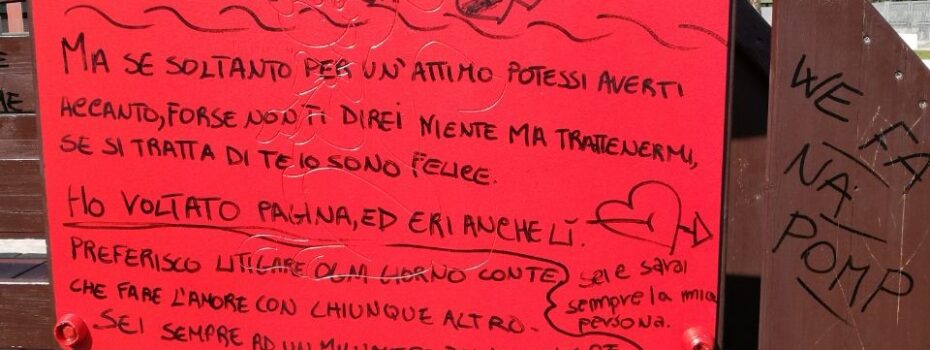 MA SE SOLTANTO PER UN'ATTIMO POTESSI AVERTI
ACCANTO, FORSE NON TI DIREI NIENTE MA TRATTENERMI,
SE SI TRATTA DI TE IO SONO FELICE.
HO VOLTATO PAGINA, ED ERI ANCHE LÌ.
PREFERISCO LITIGARE OGNI GIORNO CON TE
CHE FARE L'AMORE CON CHIUNQUE ALTRO.
SEI SEMPRE AD UN
sei e sarai
sempre la mia
persona.
WE FA
NA
POMP
ME